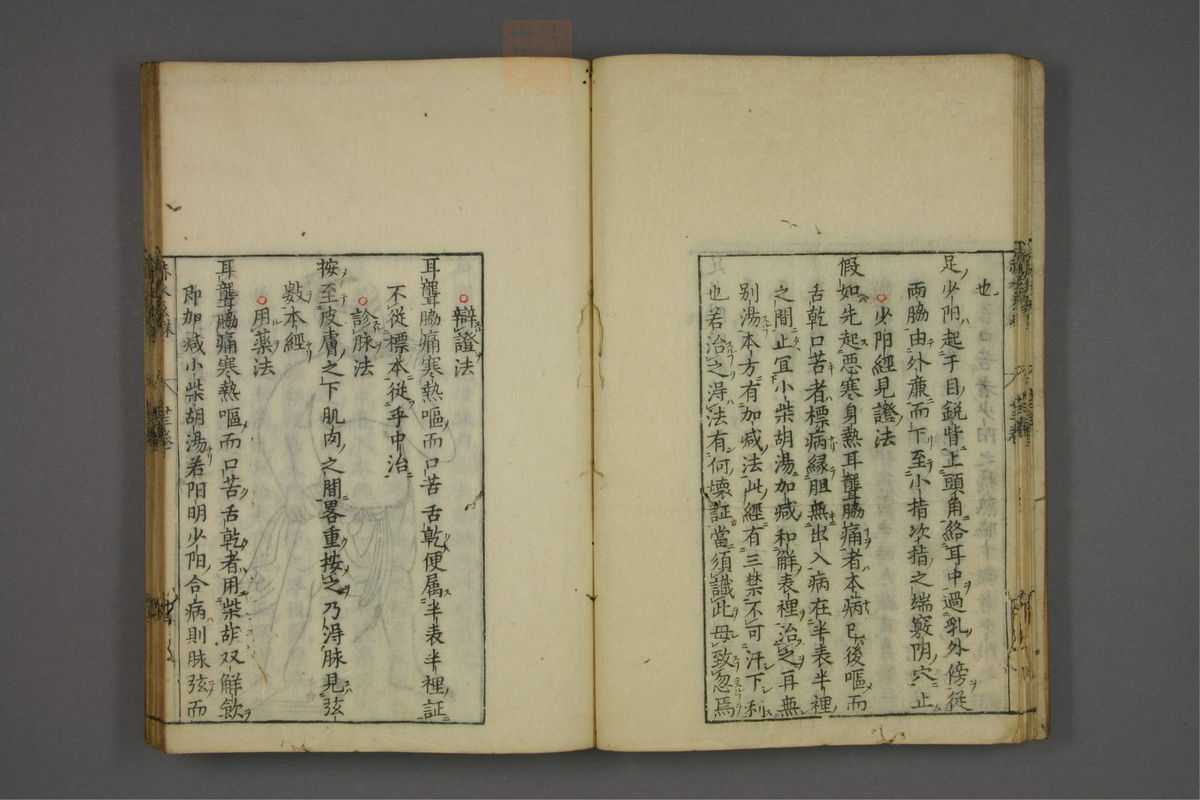 也
足少阳起于目銳眥上頭角絡耳中過乳外傍従
両脇由外廉而下至小指次指之端竅阴穴止
少阳經見證法
假如先起悪寒身熱耳聾脇痛者本病已後嘔而
舌乾口苦者標病縁胆無出入病在半表半裡
之間止宜小柴胡湯加减和觧表裡治之耳無
别湯本方有加减法此經有三禁不可汗下利
也若治之得法有何壊証當須識此毋致忽焉
辯證法
耳聾脇痛寒熱嘔而口苦舌乾便属半表半裡証
不從標本従乎中治
診脉法
按至皮膚之下肌肉之間畧重按之乃得脉見弦
數本經
用藥法
耳聾脇痛寒熱嘔而口苦舌乾者用柴胡双觧飲
即加减小柴胡湯若阳明少阳合病則脉弦而